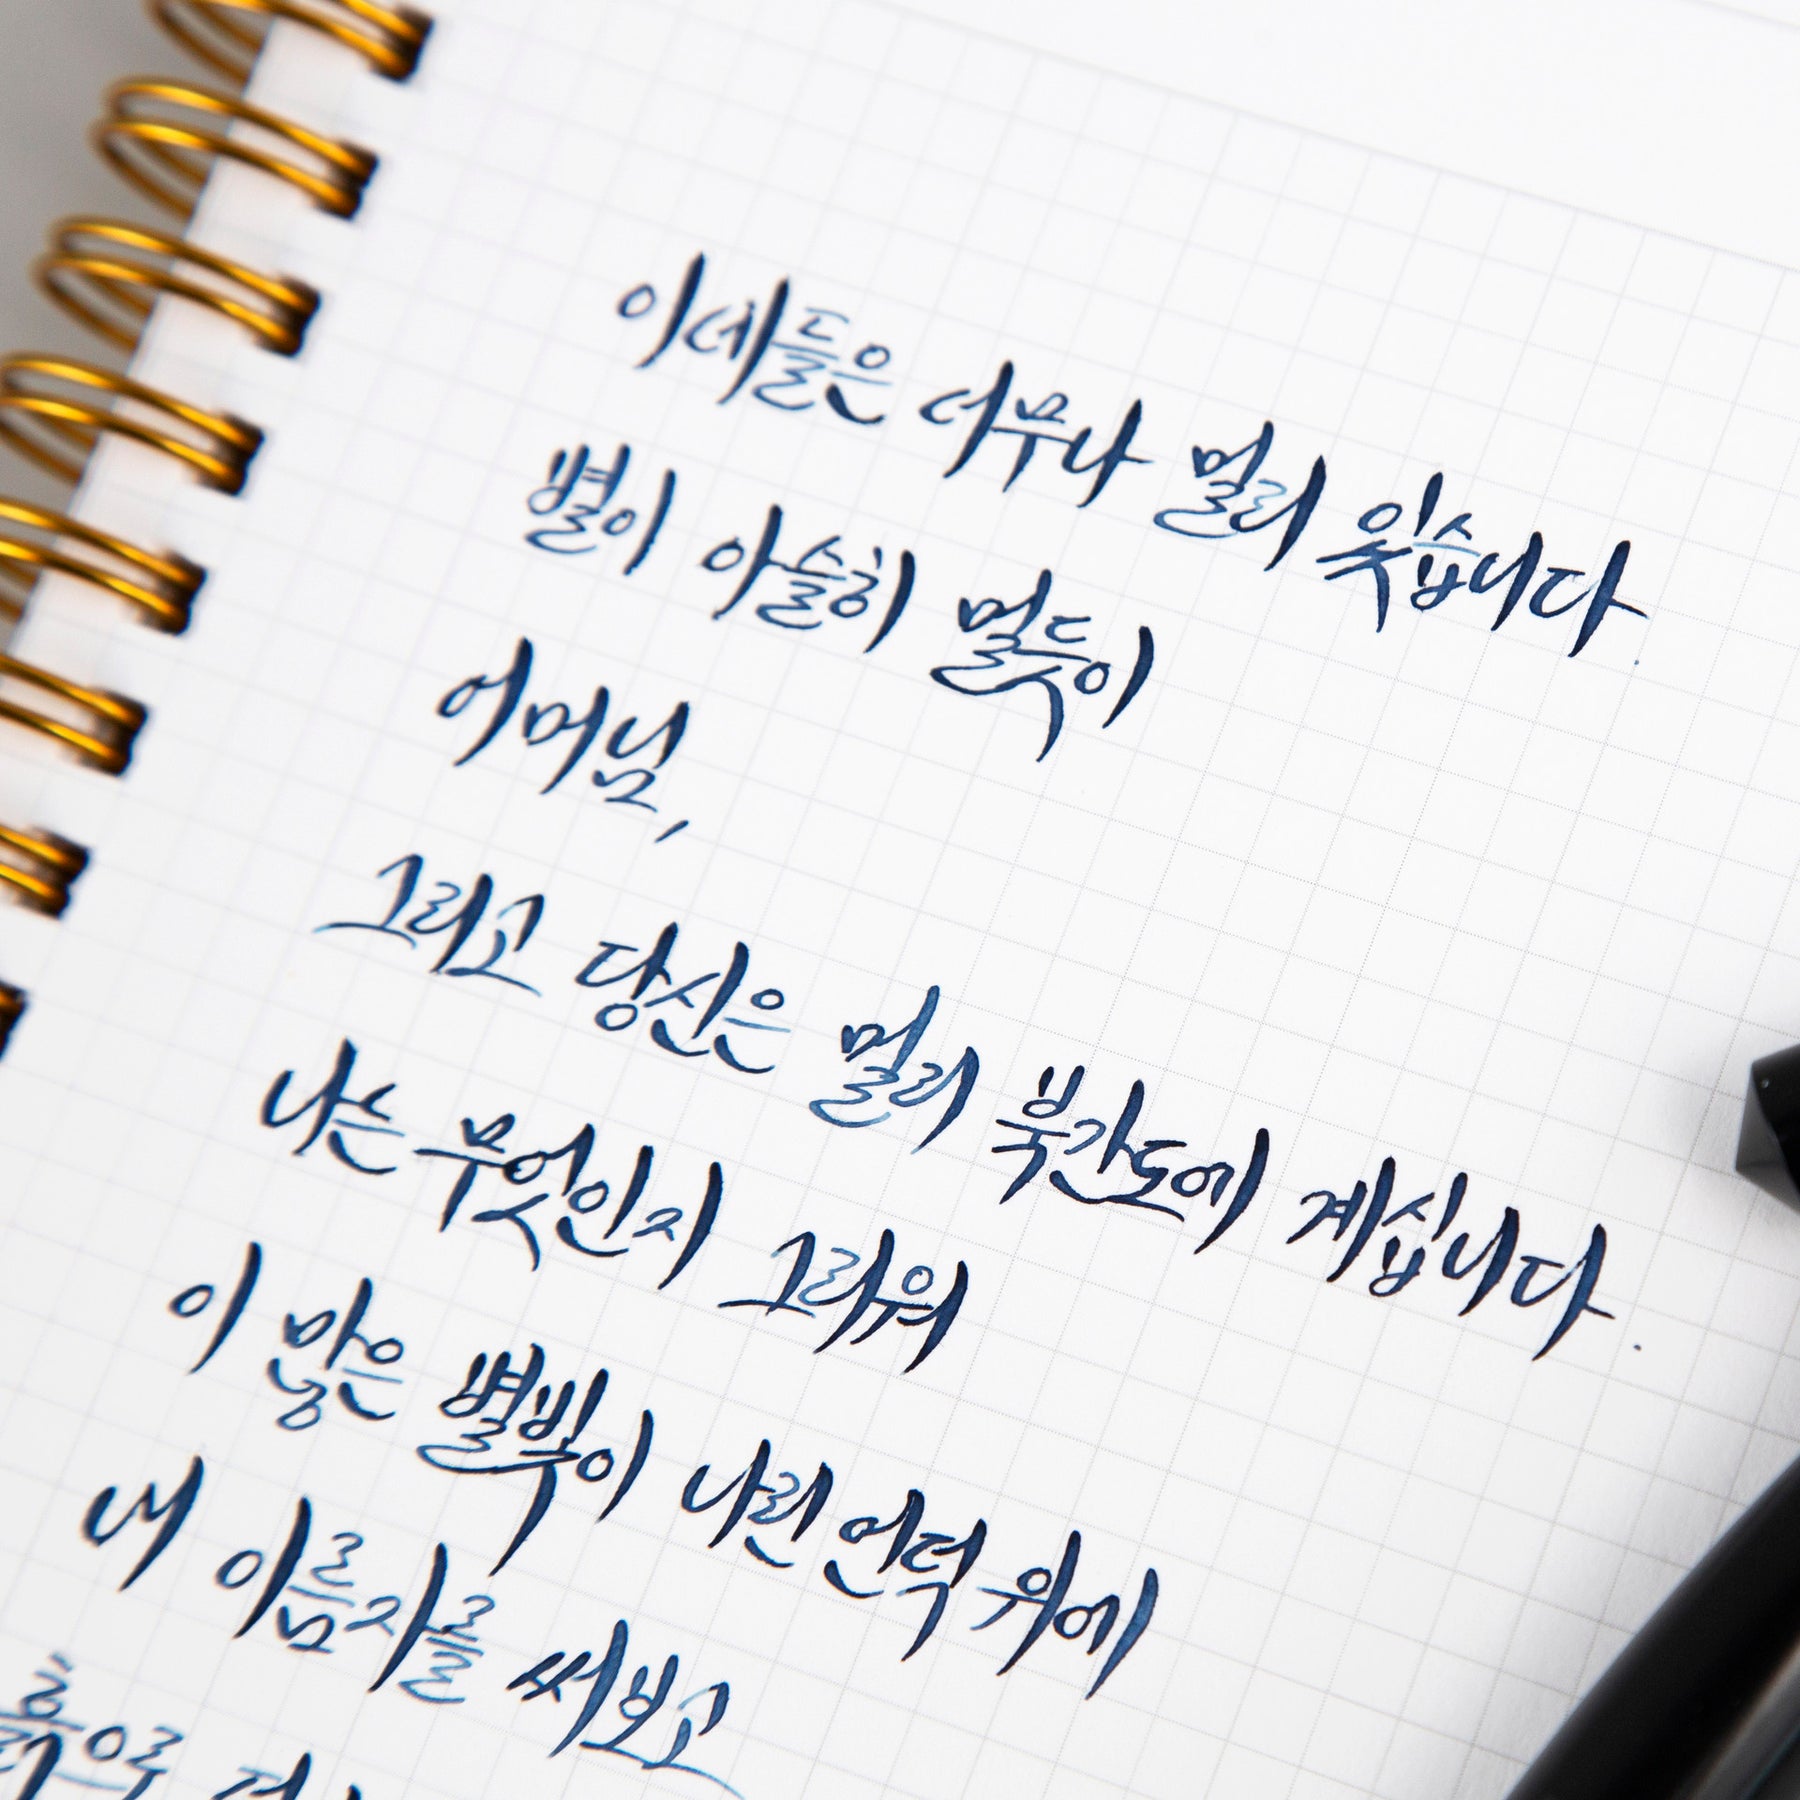 이네들은 너무나 멀리 있습니다.
별이 아슬히 멀듯이
어머님,
그리고 당신은 멀리 북간도에 계십니다.
나는 무엇인지 그리워
이 많은 별빛이 나린 언덕 위에
내 이름자를 써보고
흙으로